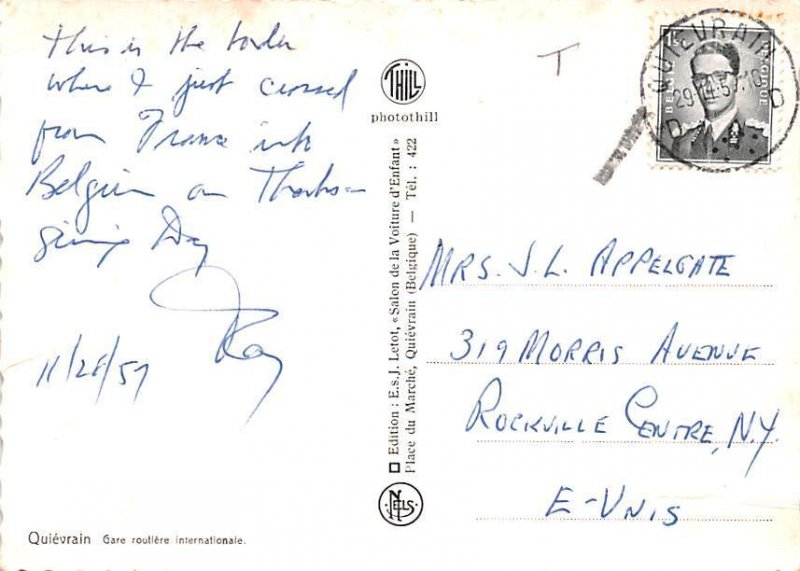 This is the border
where I just crossed
from France into
Belgium on Thanks-
giving Day
Ray
11/28/57
Quiévrain Gare routière internationale.
THILL
photothill
Edition : E.s.J. Letot, « Salon de la Voiture d'Enfant »
Place du Marché, Quiévrain (Belgique) — Tél. : 422
NELS
T
QUIEVRAIN
BELGIQUE
D D
MRS. J. L. APPELGATE
319 MORRIS AVENUE
ROCKVILLE CENTRE, N.Y.
E-UNIS